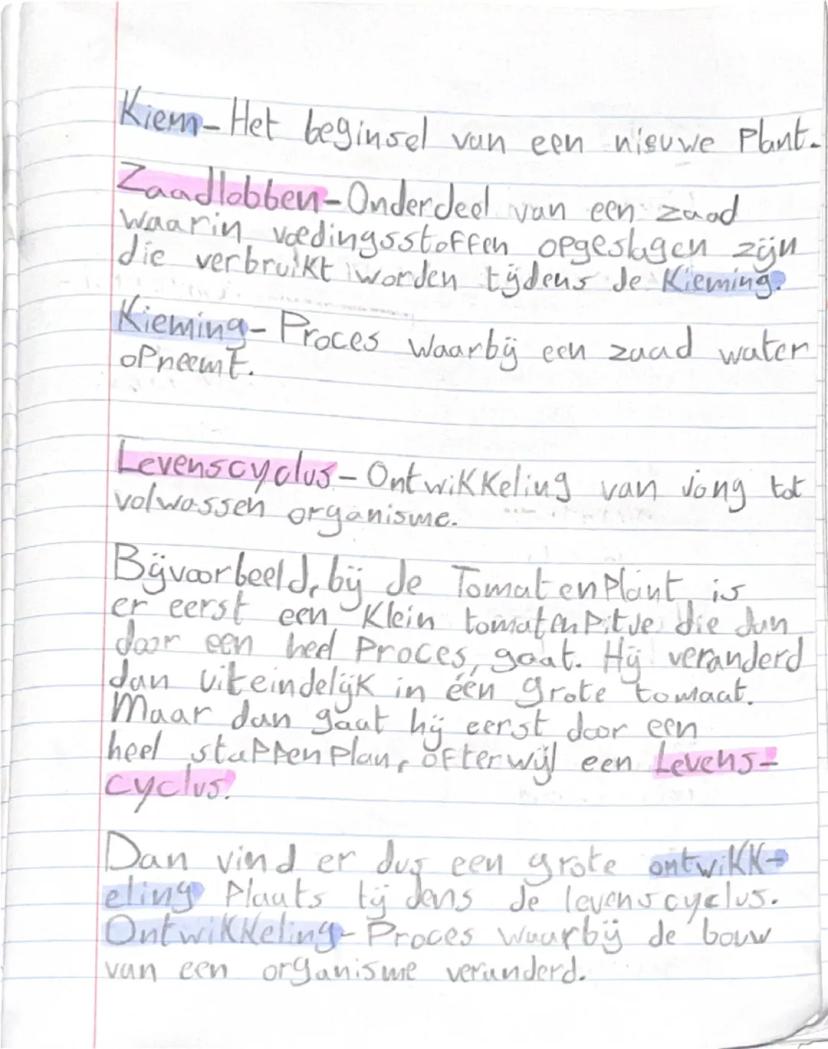 Kiem-Het beginsel van een nieuwe Plant.
Zaadlobben-Onderdeel van een zaad
waarin voedingsstoffen opgeslagen zijn
die verbruikt worden tijdens de Kieming.
Kieming-Proces waarbij een zaad water
opneemt.
Levenscyclus-Ontwikkeling van jong tot
volwassen organisme.
Bijvoorbeeld, bij de Tomatenplant is
er eerst een Klein tomatenpitje die dan
door een heel Proces, gaat. Hij veranderd
dan uiteindelijk in één grote tomaat.
Maar dan gaat hij eerst door een
heel stappenplan, ofterwijl een Levens-
cyclus.
Dan vind er dus een grote ontwikk-
eling Plaats tijdens de levenscyclus.
Ontwikkeling-Proces waarbij de bouw
van een organisme veranderd.